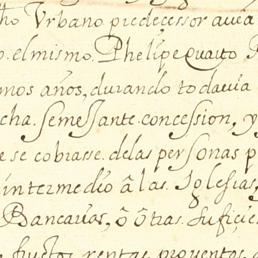 ho Vrbano predecessor auia
o. el mismo. Phelipe quarto
mos años, durando todauia
cha. semejante. concession, y
e se cobrasse. de las personas p
intermedio â las Iglesias,
Bancarias, ô ôtras suficie
frutos, rentas, prouentos